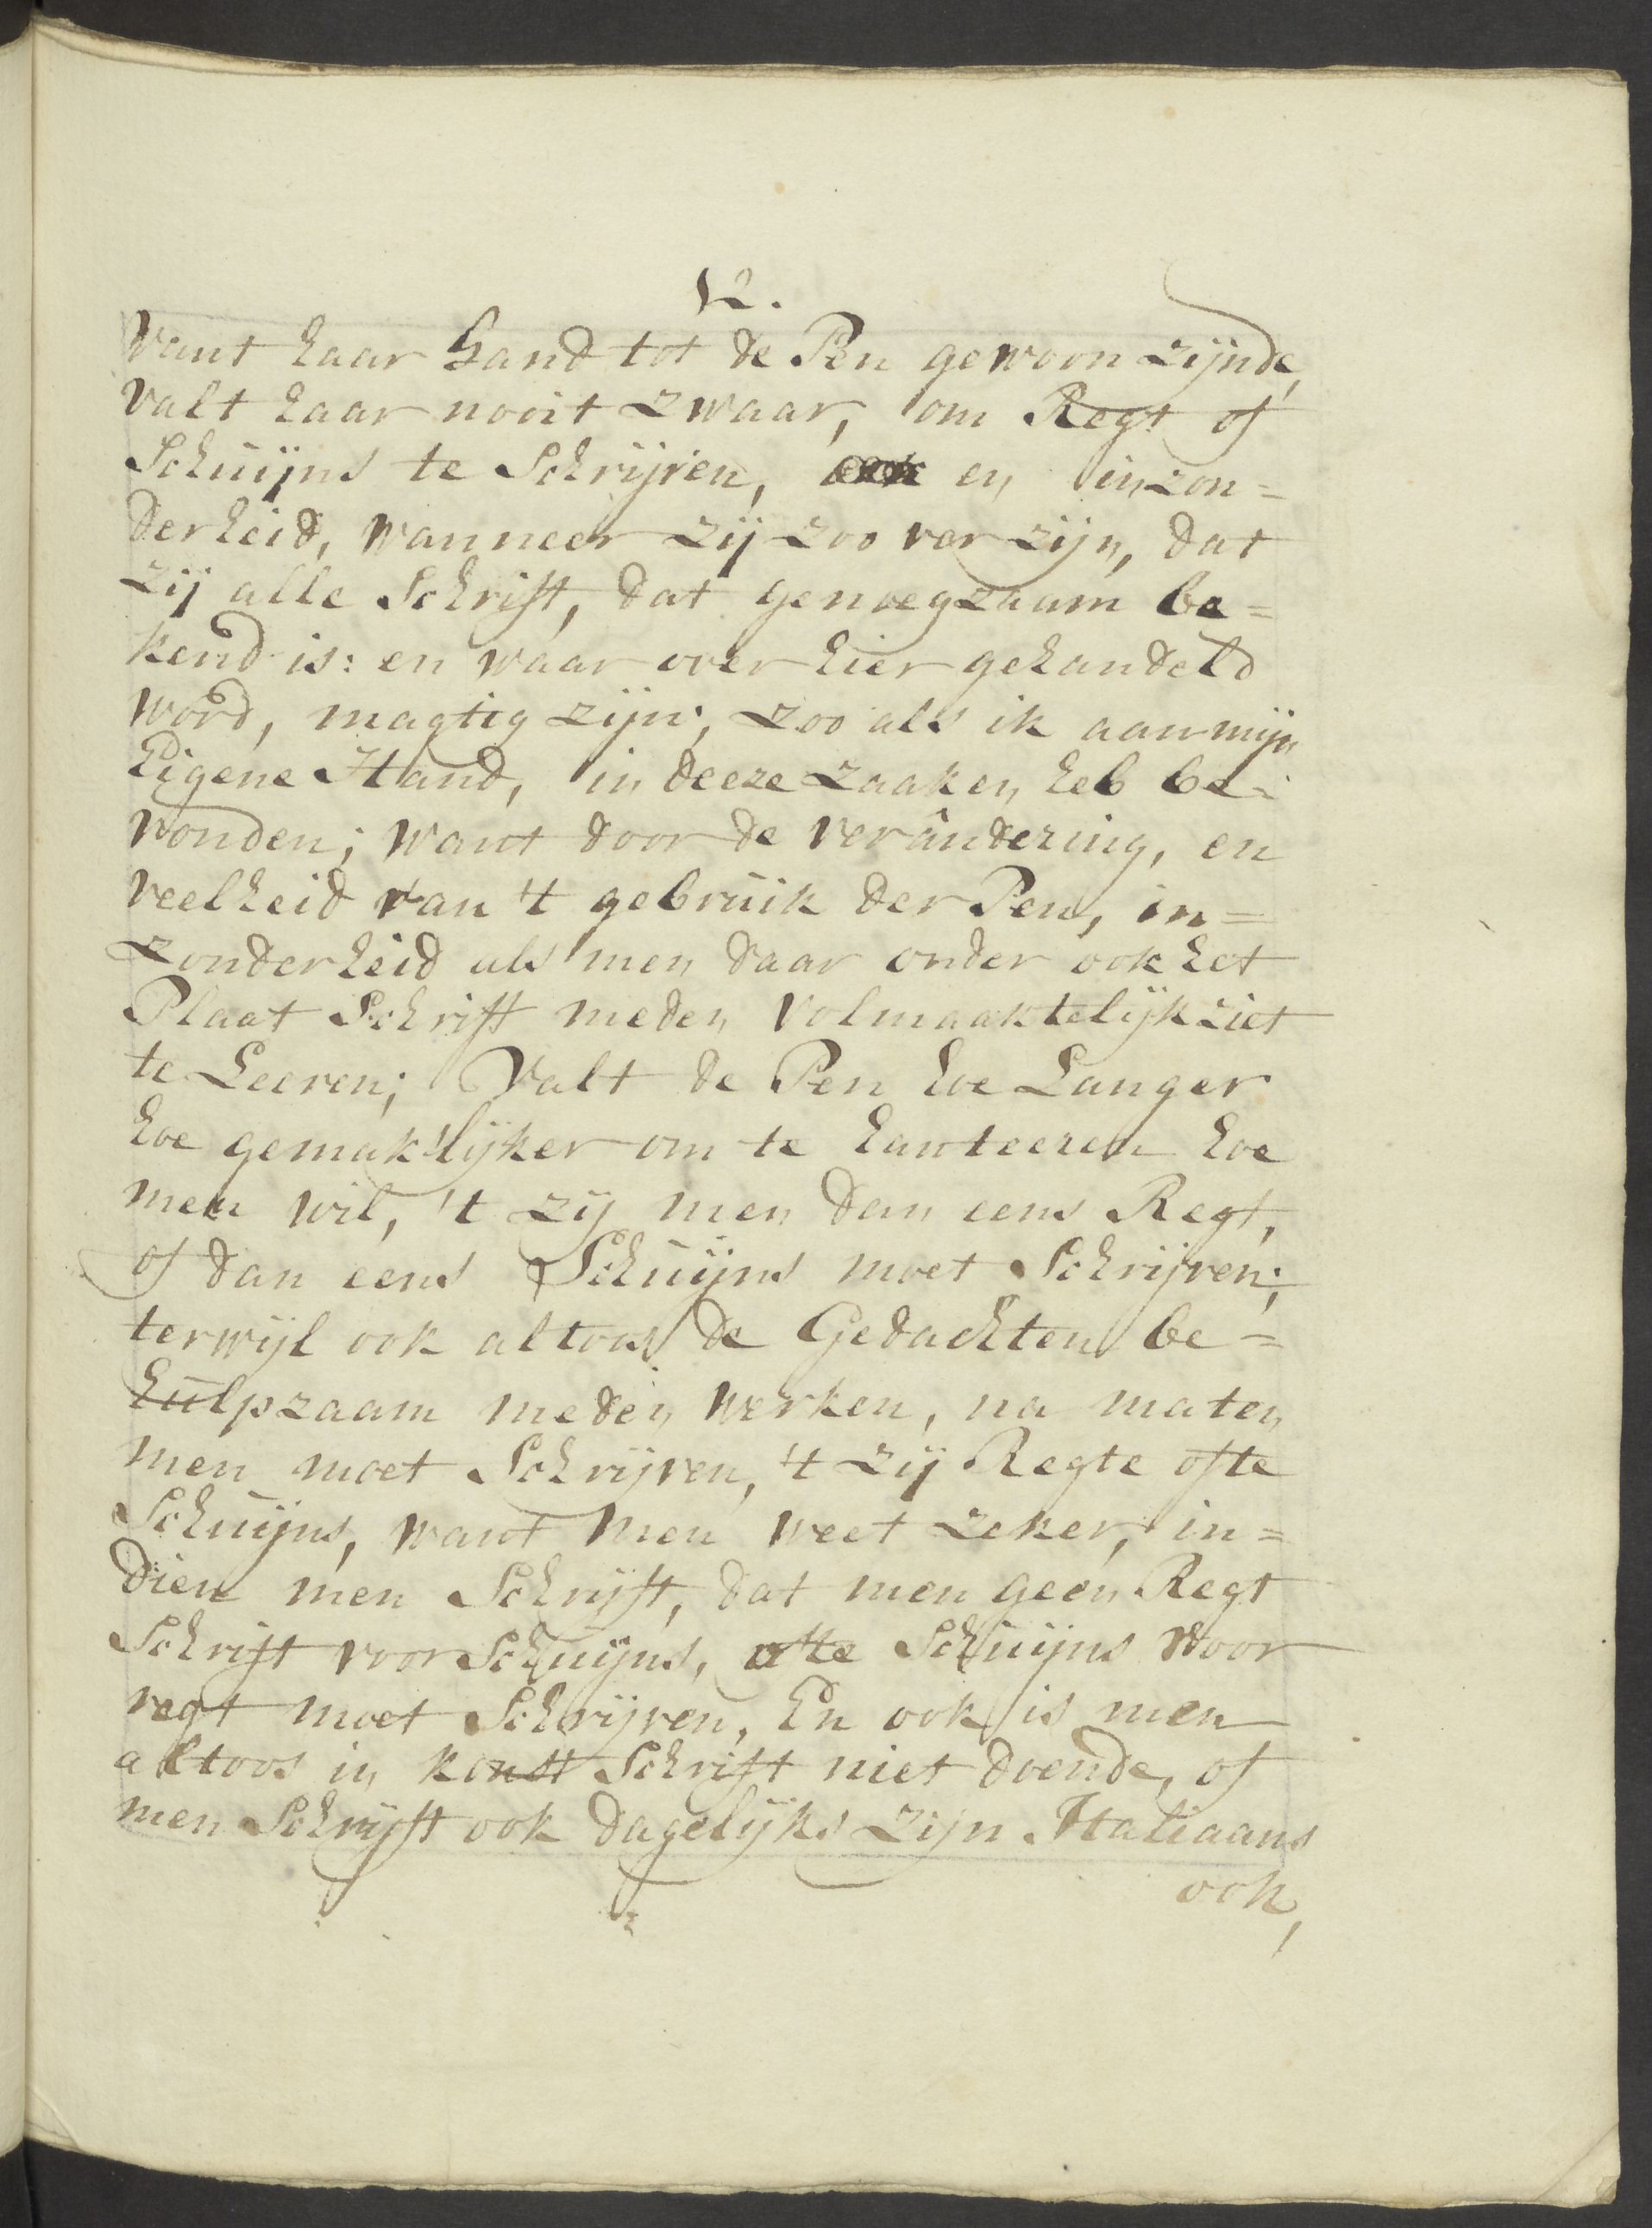 12.
Want haar Hand tot de Pen gewoon zijnde,
valt haar nooit zwaar, om Regt of
Schuijns te Schrijven, en inzon=
derheid, wanneer zij zoo ver zijn, dat
zij alle Schrift, dat genoegzaam be=
kend is: en waar over hier gehandeld
word, magtig zijn; zoo als ik aan mijn
Eigene Hand, in deeze zaaken heb be=
vonden; want door de verândering, en
veelheid van 't gebruik der Pen, in=
zonderheid als men daar onder ook het
Plaat Schrift meden volmaaktelijk ziet
te Leeren; Valt de Pen hoe Langer
hoe gemak'lijker om te hanteeren hoe
men wil, 't zij men dan eens Regt,
of dan eens Schuijns moet Schrijven;
terwijl ook altoos de Gedachten be=
hulpzaam meden werken, na maten
men moet Schrijven, 't zij Regte ofte
Schuijns, want men weet zeker, in=
dien men Schrijft, dat men geen Regt
Schrift voor Schuijns, ofte Schuijns voor
regt moet Schrijven, En ook is men
altoos in konst Schrift niet doende, of
men Schrijft ook dagelijks zijn Italiaans
ook,